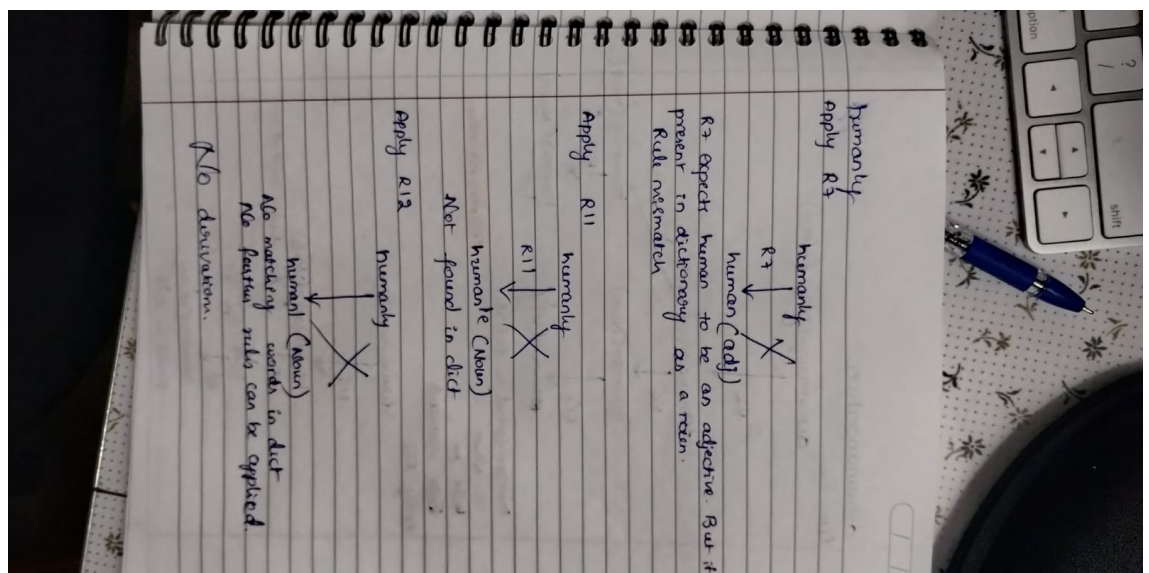 humanly
Apply R7
humanly
R7
human (adj)
R7 expects human to be an adjective. But it
present in dictionary as a noun.
Rule mismatch
Apply R11
humanly
R11
humane (Noun)
Not found in dict
Apply R12
humanly
humanl (Noun)
No matching words in dict
No further rules can be applied.
No derivation.
option
?
/
shift